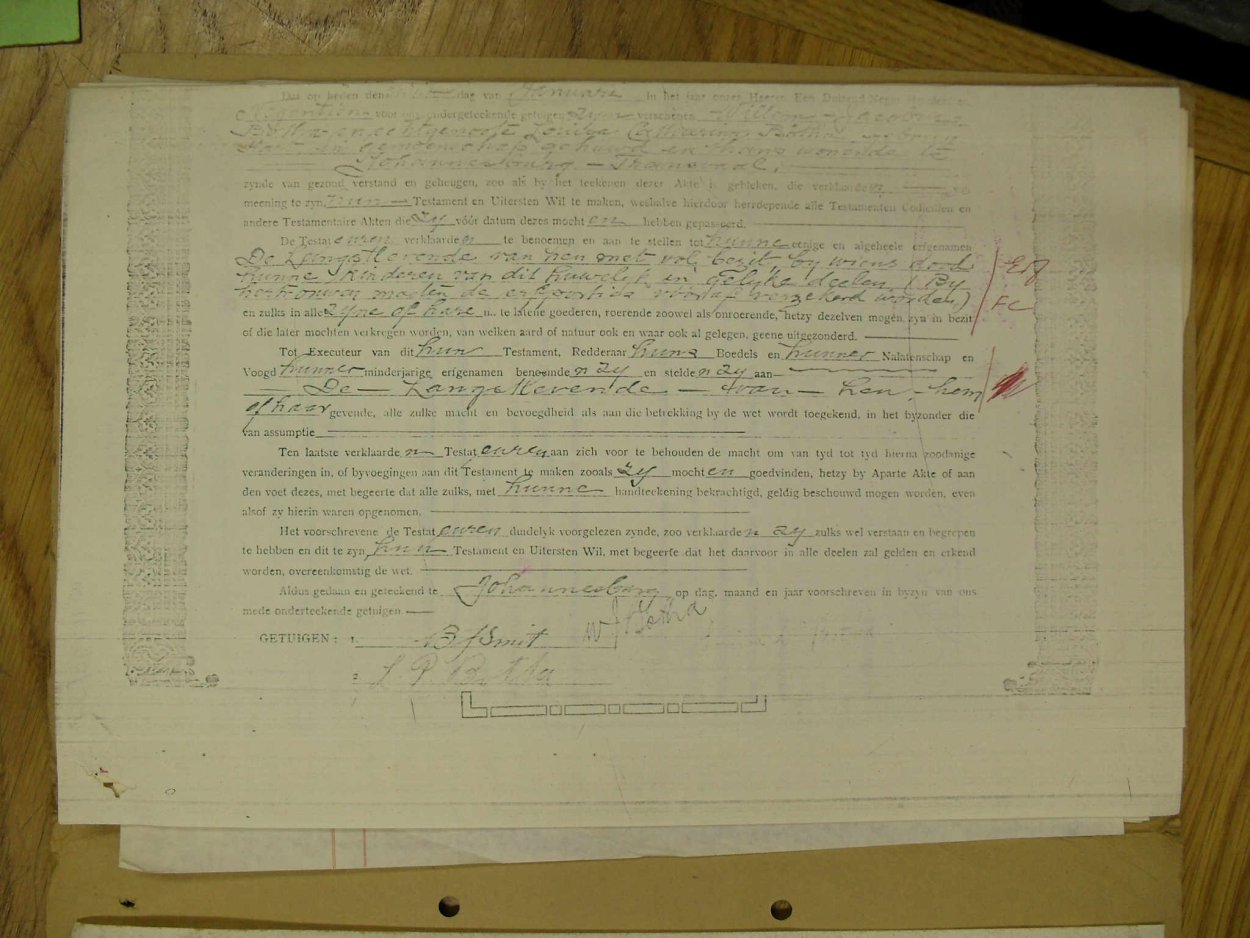 Dat op heden den dag van Januarie in het jaar onzes Heeren Een Duizend Negen Honderd en
voor ons ondergeteekende getuigen zyn verschenen Willem Jacobus
Botha en echtgenoote Louisa Catharina Botha
in gemeenschap gehuwd en thans wonende te
Johannesburg – Transvaal,
zynde van gezond verstand en geheugen, zoo als by het teekenen dezer Akte is gebleken, die verklaarden
meening te zyn, hun Testament en Uitersten Wil te maken, weshalve hierdoor herroepende alle Testamenten Codicillen en
andere Testamentaire Akten die zy vóór datum dezes mocht en hebben gepasseerd.
De Testat euren verklaarde n te benoemen en aan te stellen tot hunne eenige en algeheele erfgenamen
De Langstlevende van hen met vol bezit by wiens dood
hunne kinderen van dit huwelyk in gelyke deelen (By
hertrouwen moeten de erfportids vooraf verzekerd worden)
en zulks in alle zyne of hare n. te latene goederen, roerende zoowel als onroerende, hetzy dezelven mogen zyn in bezit
of die later mochten verkregen worden, van welken aard of natuur ook en waar ook al gelegen, geene uitgezonderd.
FC
Tot Executeur van dit hun Testament, Redderaar huns Boedels en hunner Nalatenschap en
Voogd hunner minderjarige erfgenamen benoemde n zy en stelde n zy aan
De – Langstlevende – van – hen, – hem
of haar gevende, alle zulke macht en bevoegdheid als aan die betrekking by de wet wordt toegekend, in het byzonder die
van assumptie
Ten laatste verklaarde n Testat euren aan zich voor te behouden de macht om van tyd tot tyd hierna zoodanige
veranderingen in, of byvoegingen aan dit Testament te maken zooals zy mocht en goedvinden, hetzy by Aparte Akte of aan
den voet dezes, met begeerte dat alle zulks, met hunne handteekening bekrachtigd, geldig beschouwd mogen worden, even
alsof zy hierin waren opgenomen.
Het voorschrevene de Testat euren duidelyk voorgelezen zynde, zoo verklaarde n zy zulks wel verstaan en begrepen
te hebben en dit te zyn hun Testament en Uitersten Wil, met begeerte dat het daarvoor in alle deelen zal gelden en erkend
worden, overeenkomstig de wet.
Aldus gedaan en geteekend te Johannesburg op dag, maand en jaar voorschreven in byzyn van ons
mede onderteekende getuigen.
GETUIGEN: 1. B J Smit W J Botha
2